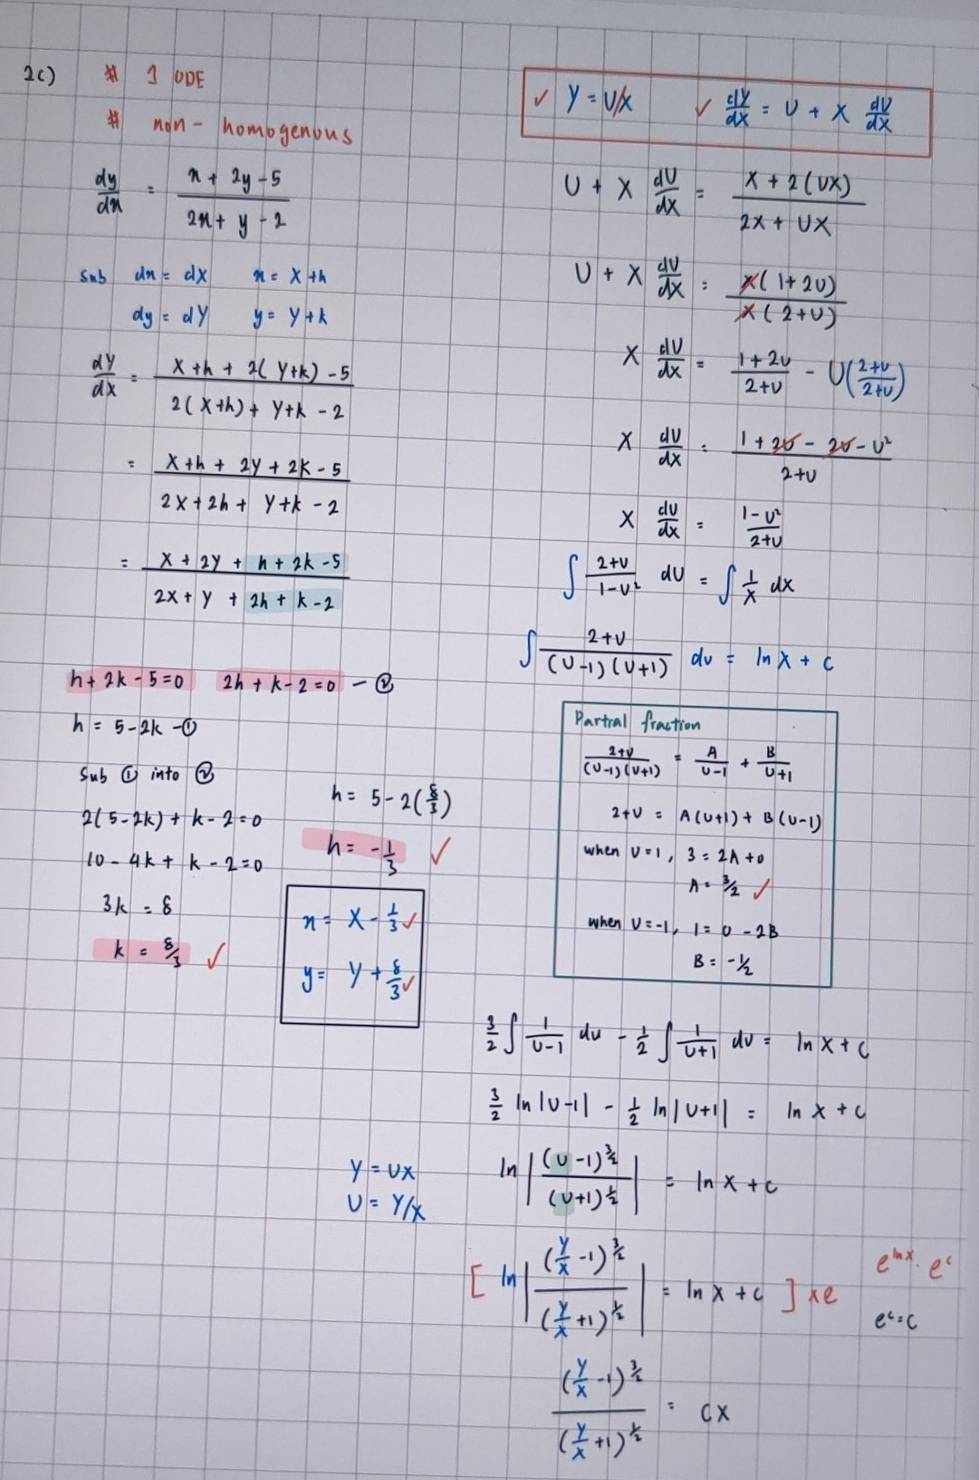 2c) # 1 ODE
# non - homogenous
dy/dx = (x + 2y - 5)/(2x + y - 2)
sub dx = dX x = X + h
dy = dY y = Y + k
dY/dX = (X + h + 2(Y+k) - 5)/(2(X+h) + Y+k - 2)
= (X+h + 2Y + 2k - 5)/(2X + 2h + Y+k - 2)
= (X + 2Y + h + 2k - 5)/(2X + Y + 2h + k - 2)
h + 2k - 5 = 0 2h + k - 2 = 0 - ②
h = 5 - 2k - ①
sub ① into ②
2(5 - 2k) + k - 2 = 0
10 - 4k + k - 2 = 0
3k = 8
k = 8/3 ✓
h = 5 - 2(8/3)
h = -1/3 ✓
x = X - 1/3 ✓
y = Y + 8/3 ✓
✓ Y = U/X ✓ dY/dX = U + X dU/dX
U + X dU/dX = (X + 2(UX))/(2X + UX)
U + X dU/dX = X(1 + 2U)/X(2 + U)
X dU/dX = (1 + 2U)/(2 + U) - U((2+U)/(2+U))
X dU/dX = (1 + 2U - 2U - U²)/(2+U)
X dU/dX = (1 - U²)/(2+U)
∫ (2+U)/(1-U²) dU = ∫ 1/X dX
∫ (2+U)/((U-1)(U+1)) dU = ln X + C
Partial fraction
(2+U)/((U-1)(U+1)) = A/(U-1) + B/(U+1)
2+U = A(U+1) + B(U-1)
when U = 1, 3 = 2A + 0
A = 3/2 ✓
when U = -1, 1 = 0 - 2B
B = -1/2
3/2 ∫ 1/(U-1) dU - 1/2 ∫ 1/(U+1) dU = ln X + C
3/2 ln|U-1| - 1/2 ln|U+1| = ln X + C
Y = UX
U = Y/X
ln |(U-1)^(3/2)/(U+1)^(1/2)| = ln X + C
[ ln |(Y/X - 1)^(3/2)/(Y/X + 1)^(1/2)| = ln X + C ] × e
e^(ln X) · e^C
e^C = C
(Y/X - 1)^(3/2)/(Y/X + 1)^(1/2) = CX